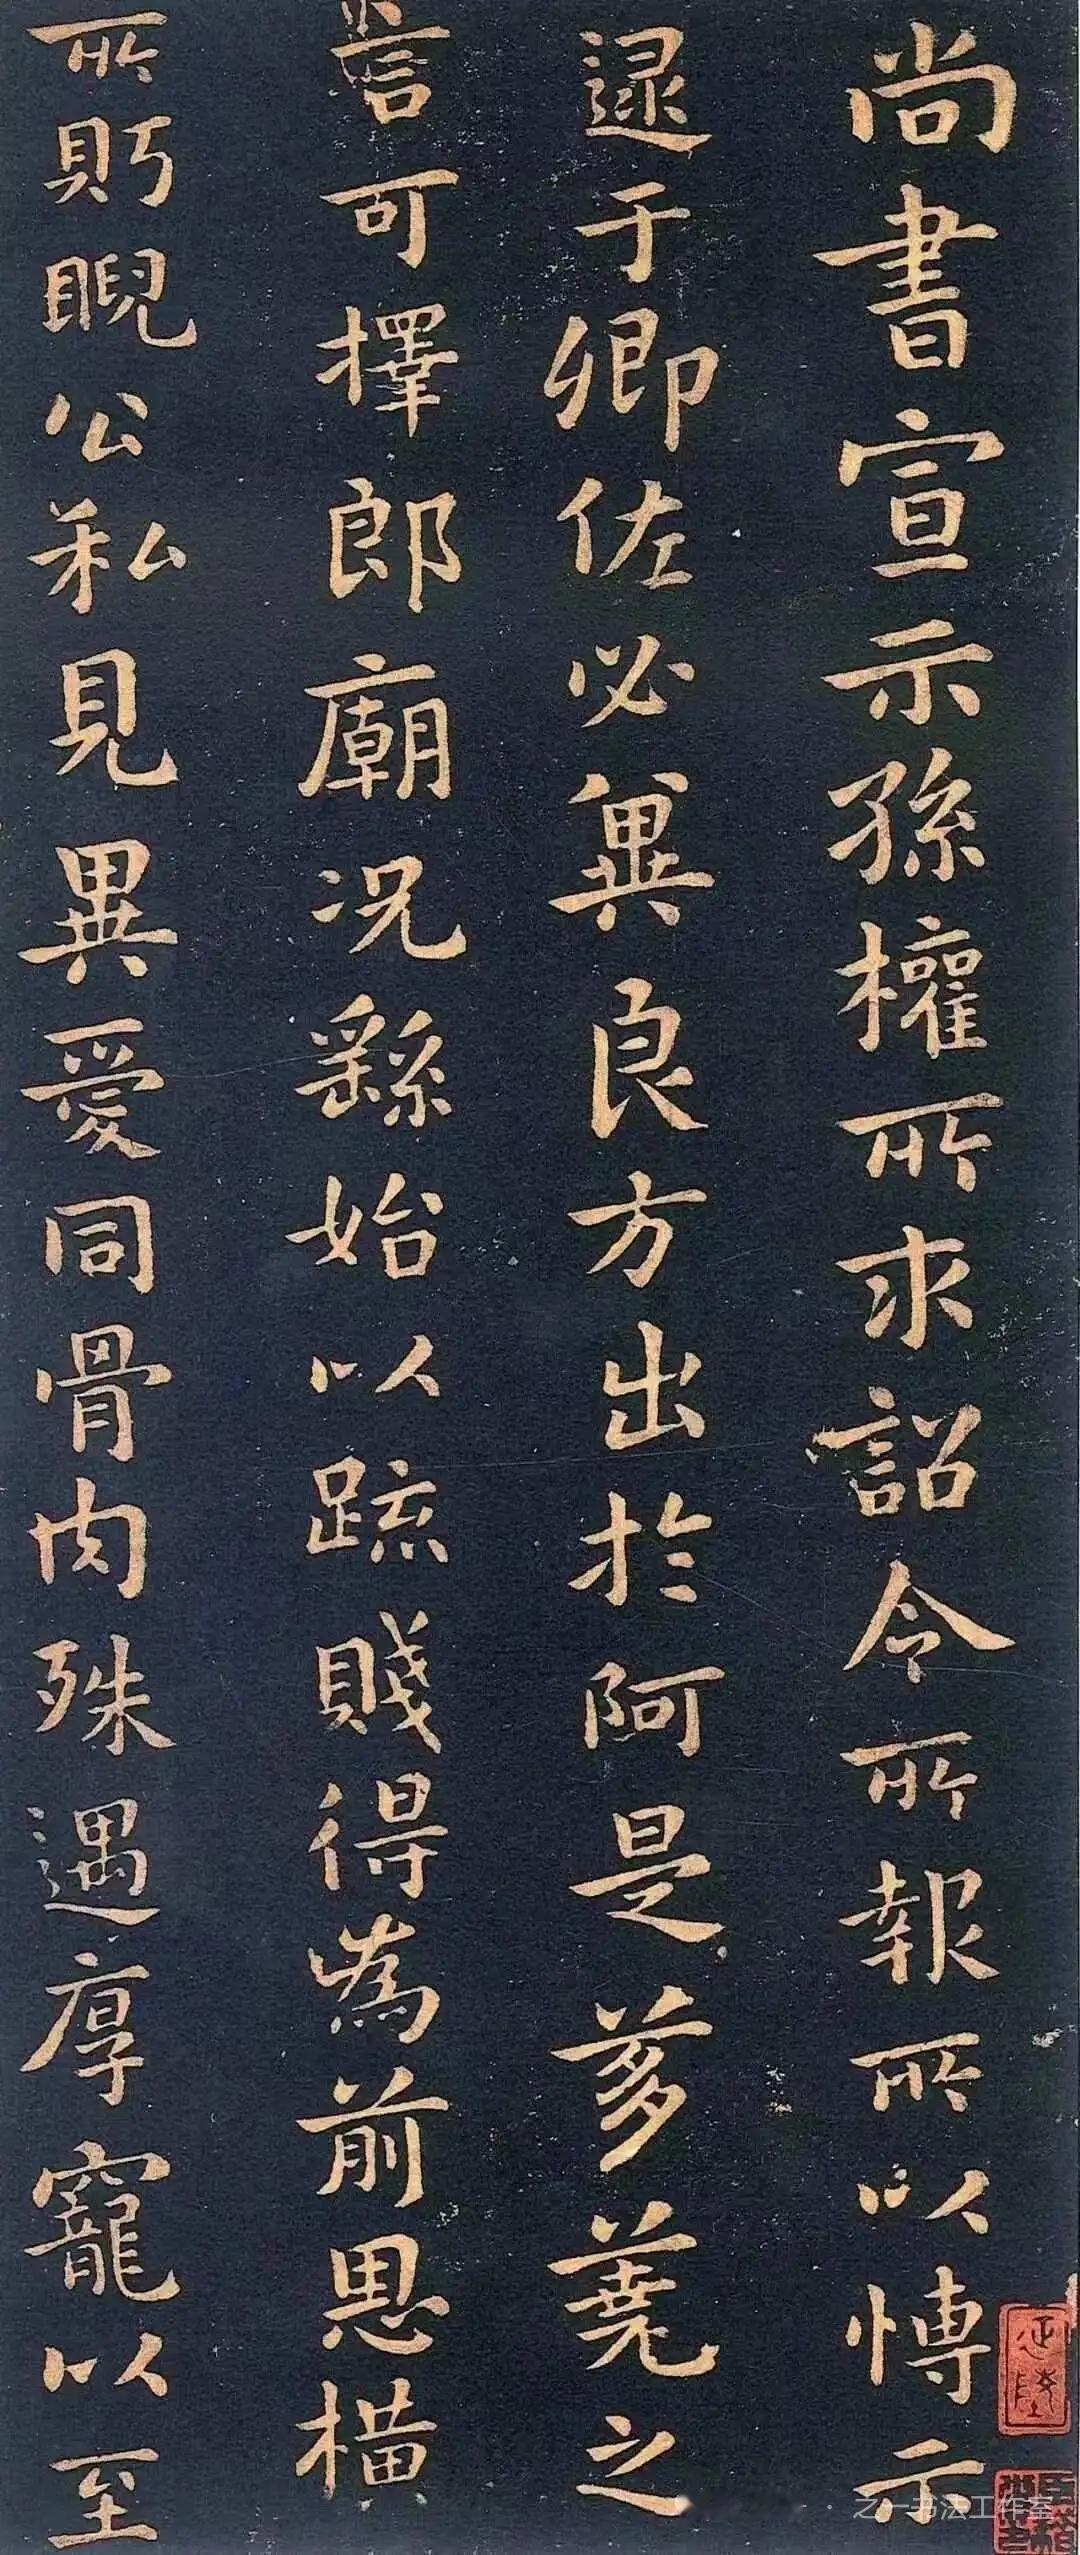 尚書宣示孫權所求詔令所報所以博示
逮于卿佐必冀良方出於阿是芻蕘之
言可擇郎廟況繇始以疏賤得為前恩橫
所眄睨公私見異愛同骨肉殊遇厚寵以至
之一书法工作室